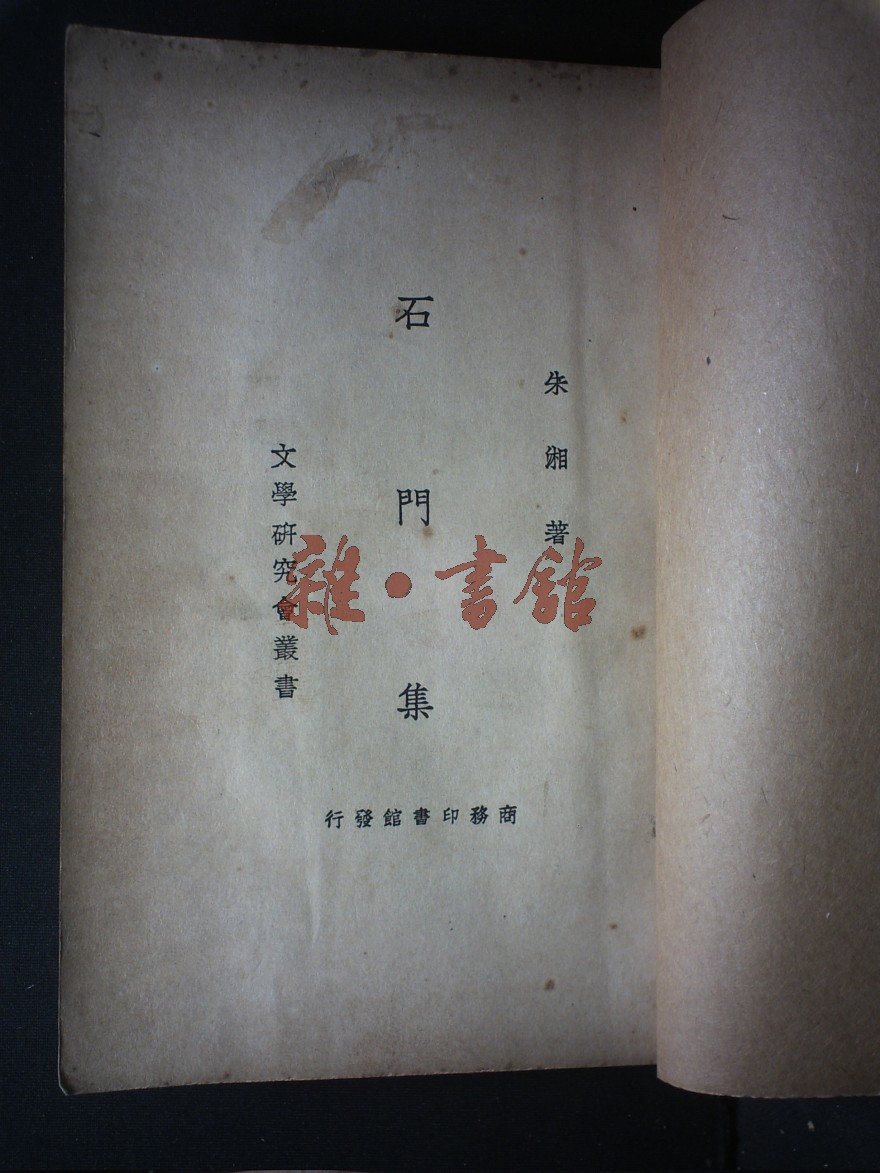 朱湘著
石門集
文學研究會叢書
商務印書館發行
雜·書館